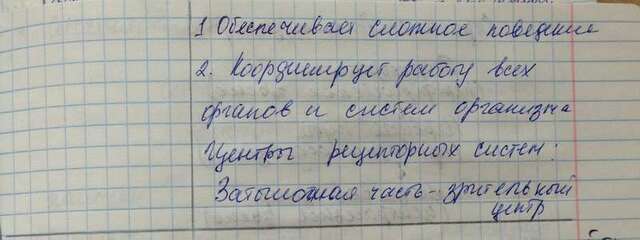 1 Обеспечивает сложное поведение
2. Координирует работу всех
органов и систем организма
Центры рецепторных систем:
Затылочная часть - зрительный
центр